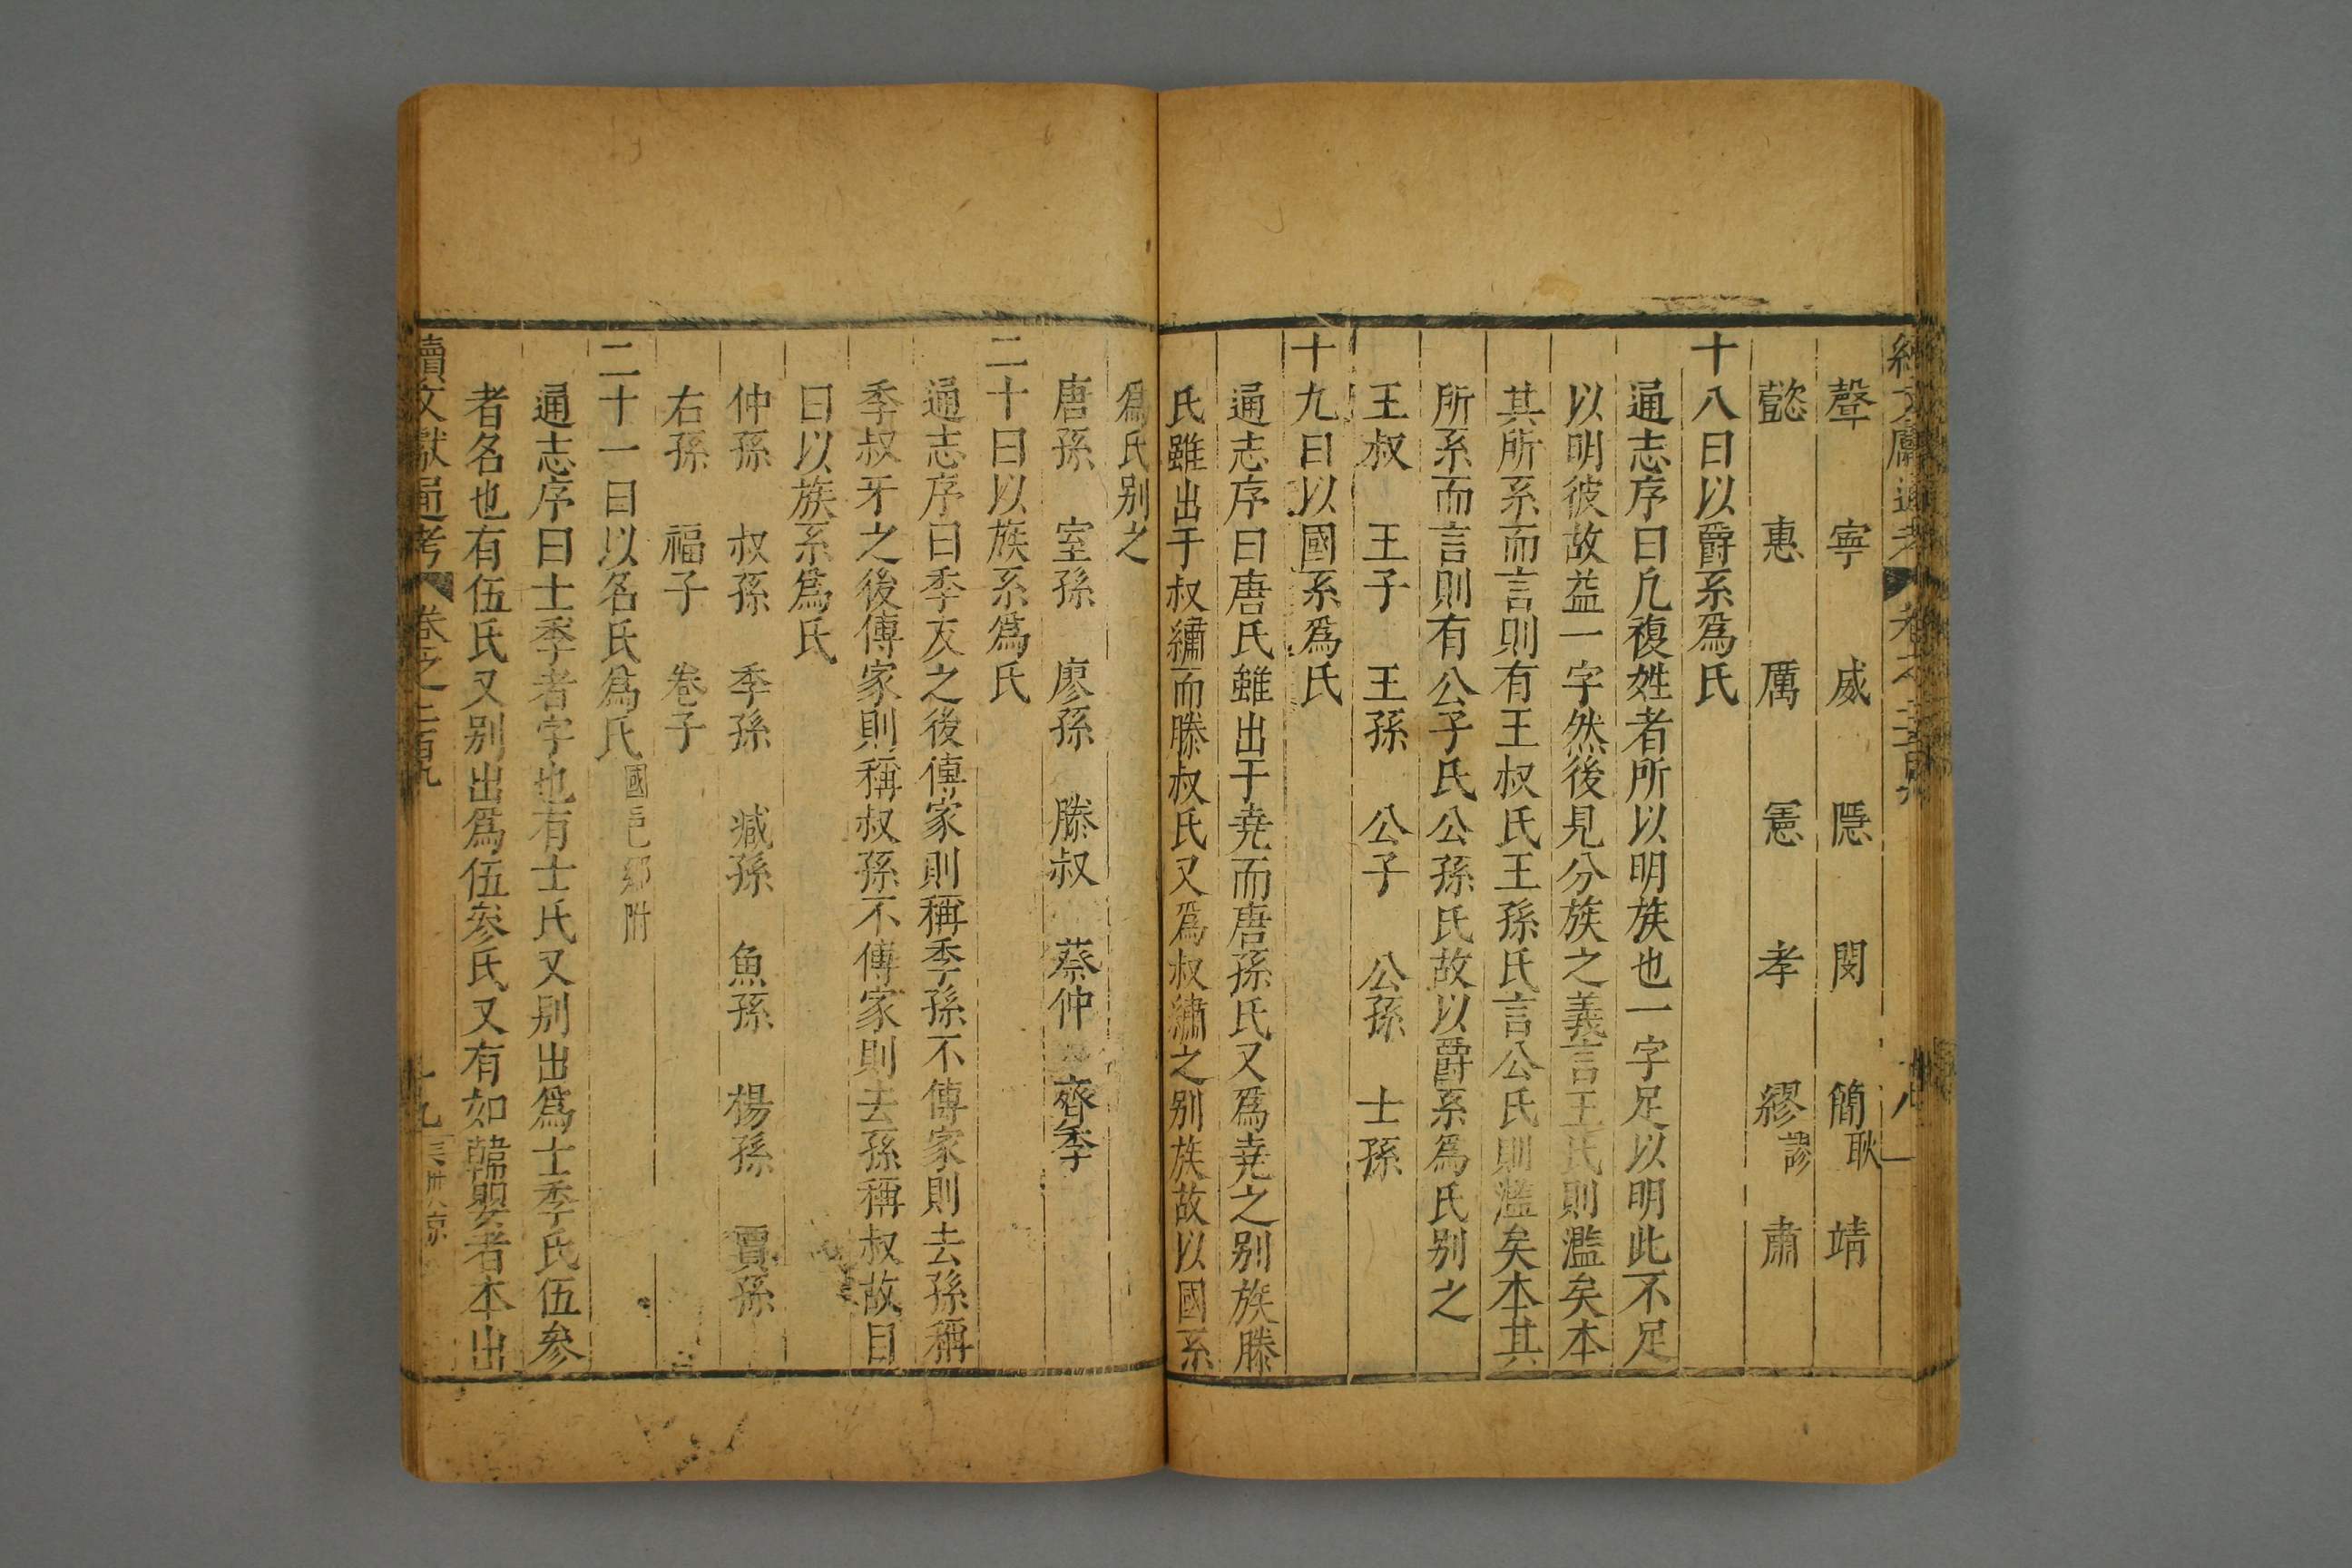 聲 寜 威 隱 閔 簡耿 靖
懿 惠 厲 憲 孝 繆謬 肅
十八曰以爵系爲氏
通志序曰凢複姓者所以明族也一字足以明此不足
以明彼故益一字然後見分族之義言王氏則濫矣本
其所系而言則有王叔氏王孫氏言公氏則濫矣本其
所系而言則有公子氏公孫氏故以爵系爲氏别之
王叔 王子 王孫 公子 公孫 士孫
十九曰以國系爲氏
通志序曰唐氏雖出于堯而唐孫氏又爲堯之别族滕
氏雖出于叔繡而滕叔氏又爲叔繡之别族故以國系
爲氏别之
唐孫 室孫 廖孫 滕叔 蔡仲 齊季
二十曰以族系爲氏
通志序曰季友之後傳家則稱季孫不傳家則去孫稱
季叔牙之後傳家則稱叔孫不傳家則去孫稱叔故目
曰以族系爲氏
仲孫 叔孫 季孫 臧孫 魚孫 楊孫 賈孫
右孫 福子 卷子
二十一曰以名氏爲氏國邑鄉附
通志序曰士季者字也有士氏又别出爲士季氏伍參
者名也有伍氏又别出爲伍參氏又有如韓嬰者本出
續文獻通考 卷之二百九 十九